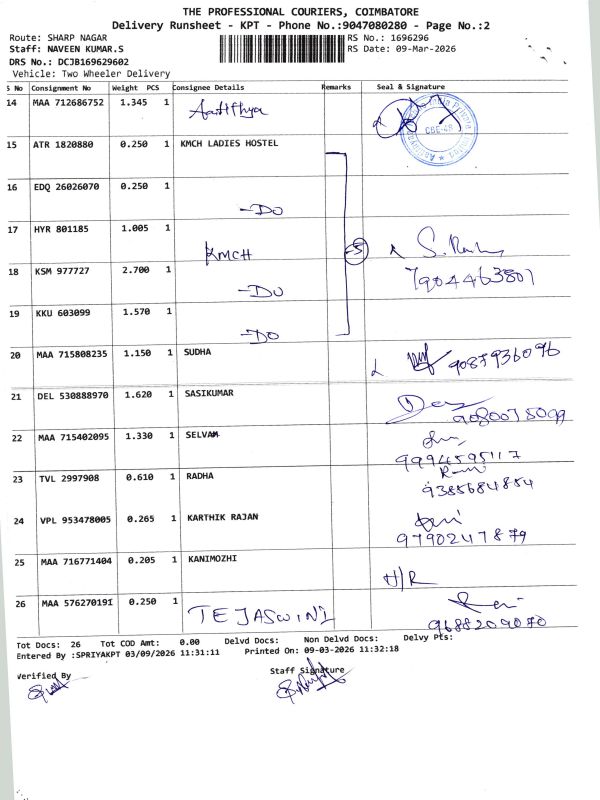 THE PROFESSIONAL COURIERS, COIMBATORE
Delivery Runsheet - KPT - Phone No.:9047080280 - Page No.:2
Route: SHARP NAGAR
Staff: NAVEEN KUMAR.S
RS No.: 1696296
RS Date: 09-Mar-2026
DRS No.: DCJB169629602
Vehicle: Two Wheeler Delivery
S No Consignment No Weight PCS Consignee Details Remarks Seal & Signature
14 MAA 712686752 1.345 1 Aadithya CBE-48
15 ATR 1820880 0.250 1 KMCH LADIES HOSTEL
16 EDQ 26026070 0.250 1 -DO
17 HYR 801185 1.005 1 KMCH 5
18 KSM 977727 2.700 1 -DO 7904463501
19 KKU 603099 1.570 1 -DO
20 MAA 715808235 1.150 1 SUDHA 9087936096
21 DEL 530888970 1.620 1 SASIKUMAR 9080075099
22 MAA 715402095 1.330 1 SELVAM 9994595117
23 TVL 2997908 0.610 1 RADHA 9385684854
24 VPL 953478005 0.265 1 KARTHIK RAJAN 9790247879
25 MAA 716771404 0.205 1 KANIMOZHI H/R
26 MAA 576270191 0.250 1 TEJASWINI 9688209070
Tot Docs: 26 Tot COD Amt: 0.00 Delvd Docs: Non Delvd Docs: Delvy Pts:
Entered By :SPRIYAKPT 03/09/2026 11:31:11 Printed On: 09-03-2026 11:32:18
Verified By
Staff Signature